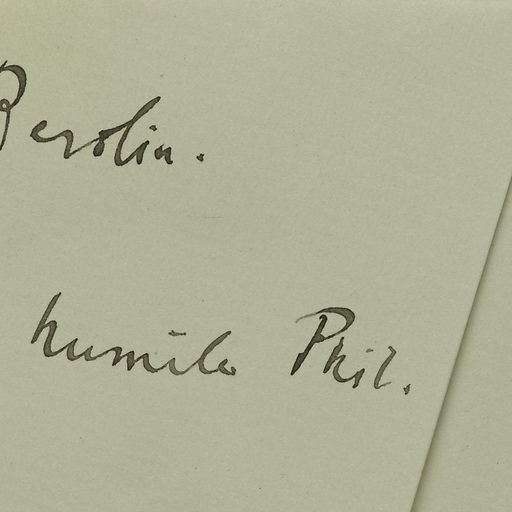 Berolin.
humile Phil.